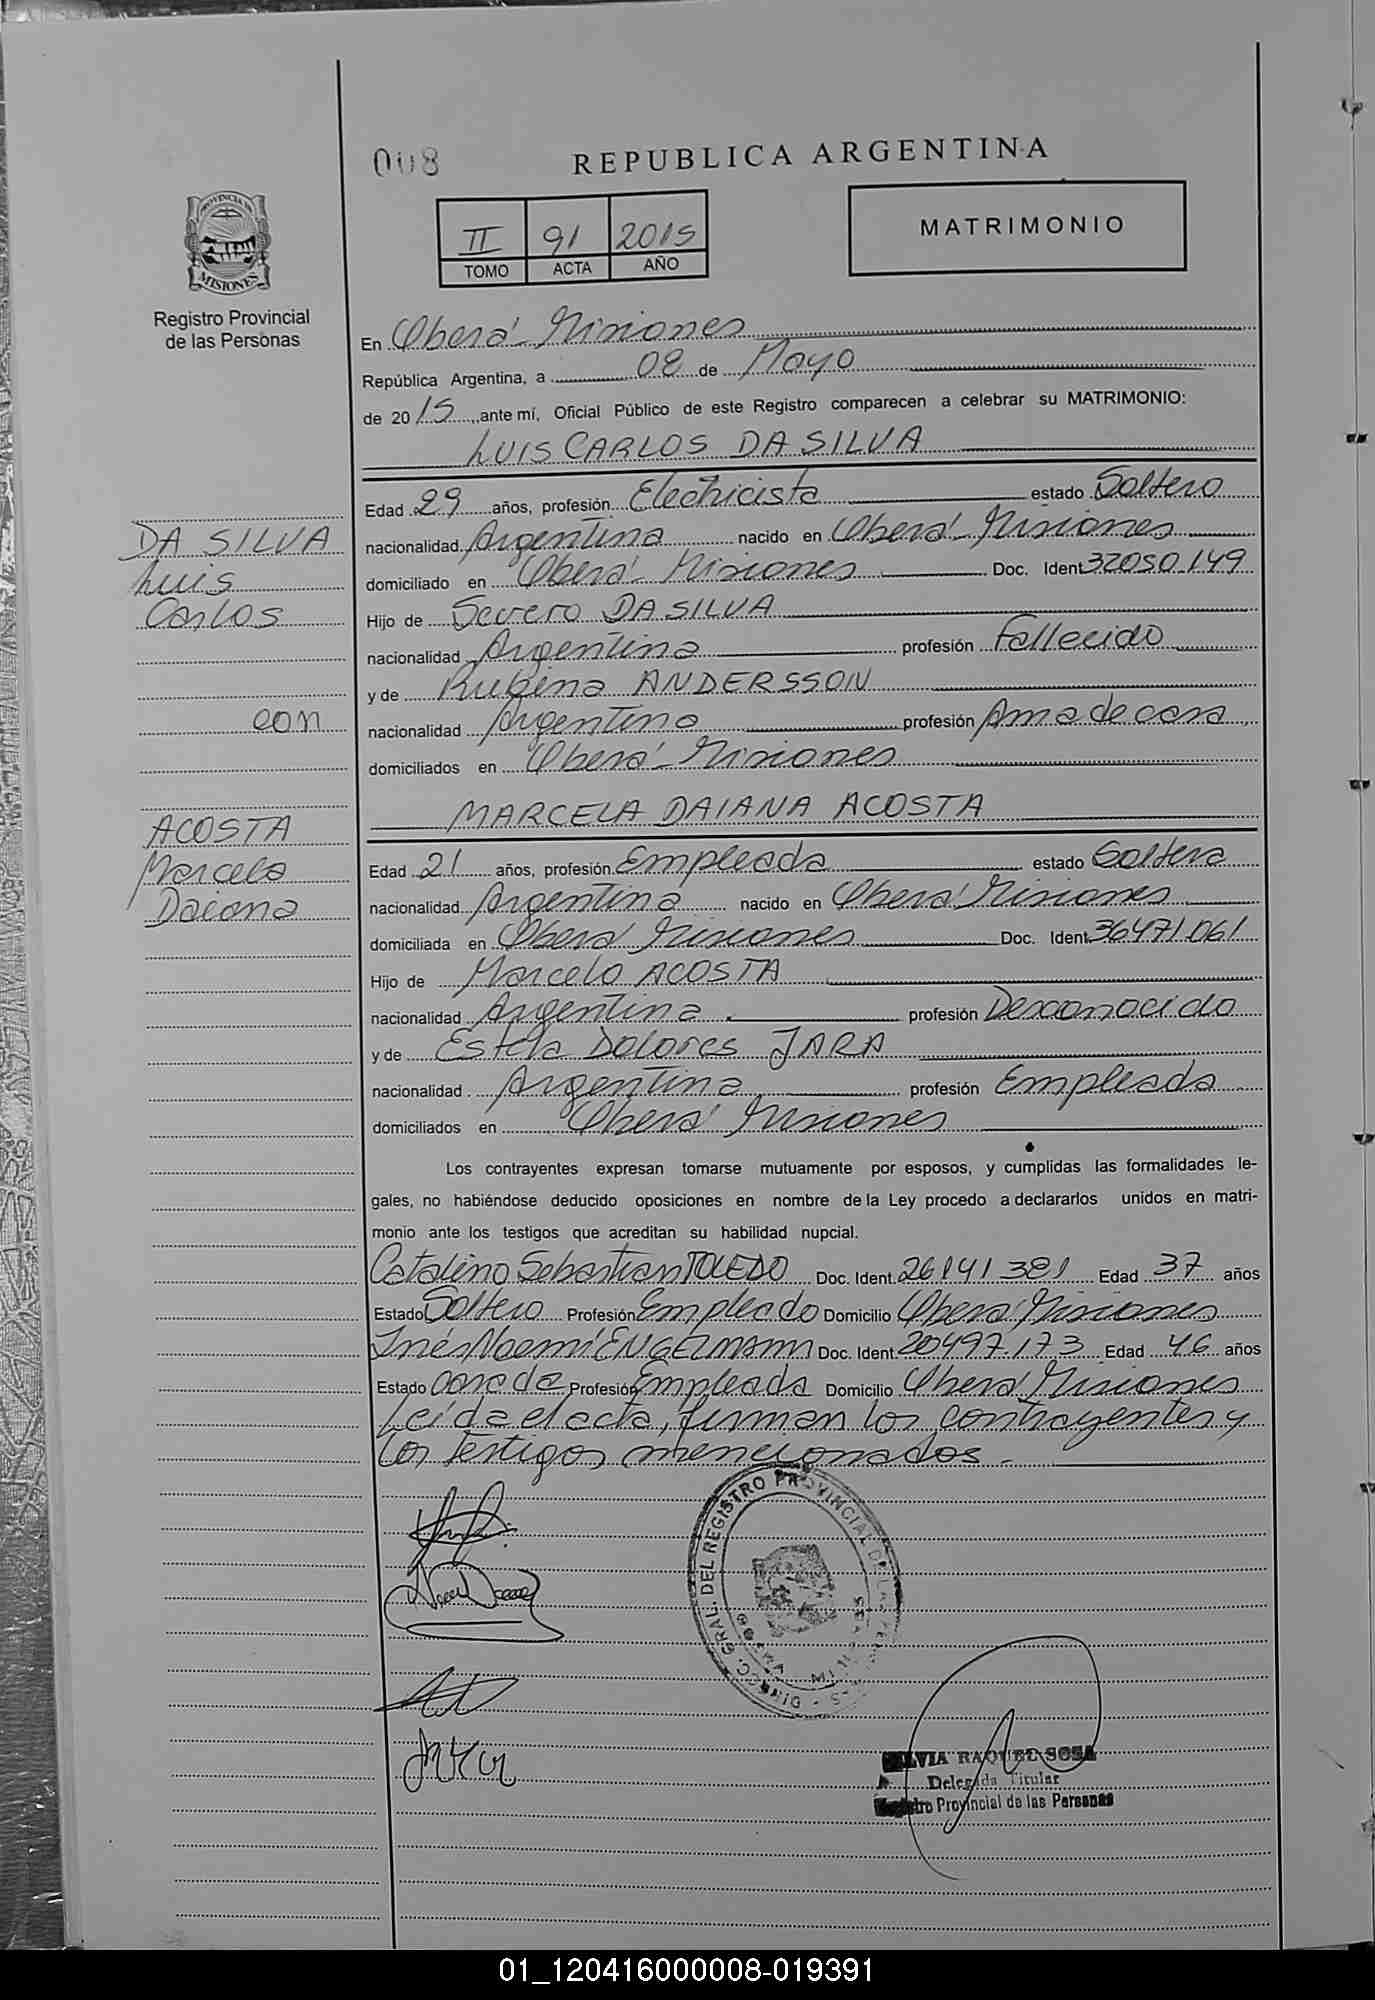 008
REPUBLICA ARGENTINA
PROVINCIA DE
MISIONES
Registro Provincial
de las Personas
II 91 2015
TOMO ACTA AÑO
MATRIMONIO
En Oberá - Misiones
República Argentina, a 08 de Mayo
de 2015, ante mí, Oficial Público de este Registro comparecen a celebrar su MATRIMONIO:
LUIS CARLOS DA SILVA
Edad 29 años, profesión Electricista estado Soltero
nacionalidad Argentina nacido en Oberá - Misiones
domiciliado en Oberá - Misiones Doc. Ident 32050.149
Hijo de Severo DA SILVA
nacionalidad Argentina profesión Fallecido
y de Rubena ANDERSSON
nacionalidad Argentina profesión Ama de casa
domiciliados en Oberá - Misiones
DA SILVA
Luis
Carlos
con
ACOSTA
Marcela
Daiana
MARCELA DAIANA ACOSTA
Edad 21 años, profesión Empleada estado Soltera
nacionalidad Argentina nacido en Oberá Misiones
domiciliada en Oberá Misiones Doc. Ident. 36471.061
Hijo de Marcelo ACOSTA
nacionalidad Argentina profesión Desconocido
y de Estela Dolores JARA
nacionalidad Argentina profesión Empleada
domiciliados en Oberá Misiones
Los contrayentes expresan tomarse mutuamente por esposos, y cumplidas las formalidades le-
gales, no habiéndose deducido oposiciones en nombre de la Ley procedo a declararlos unidos en matri-
monio ante los testigos que acreditan su habilidad nupcial.
Catalino Sebastian TOLEDO Doc. Ident. 26141381 Edad 37 años
Estado Soltero Profesión Empleado Domicilio Oberá Misiones
Inés Noemí ENGELMANN Doc. Ident. 20497.173 Edad 46 años
Estado casada Profesión Empleada Domicilio Oberá Misiones
Leída el acta, firman los contrayentes y
los testigos mencionados.
DIREC. GRAL. DEL REGISTRO PROVINCIAL DE LAS PERSONAS
MISIONES
SILVIA RAQUEL SOSA
Delegada Titular
Registro Provincial de las Personas
01_120416000008-019391